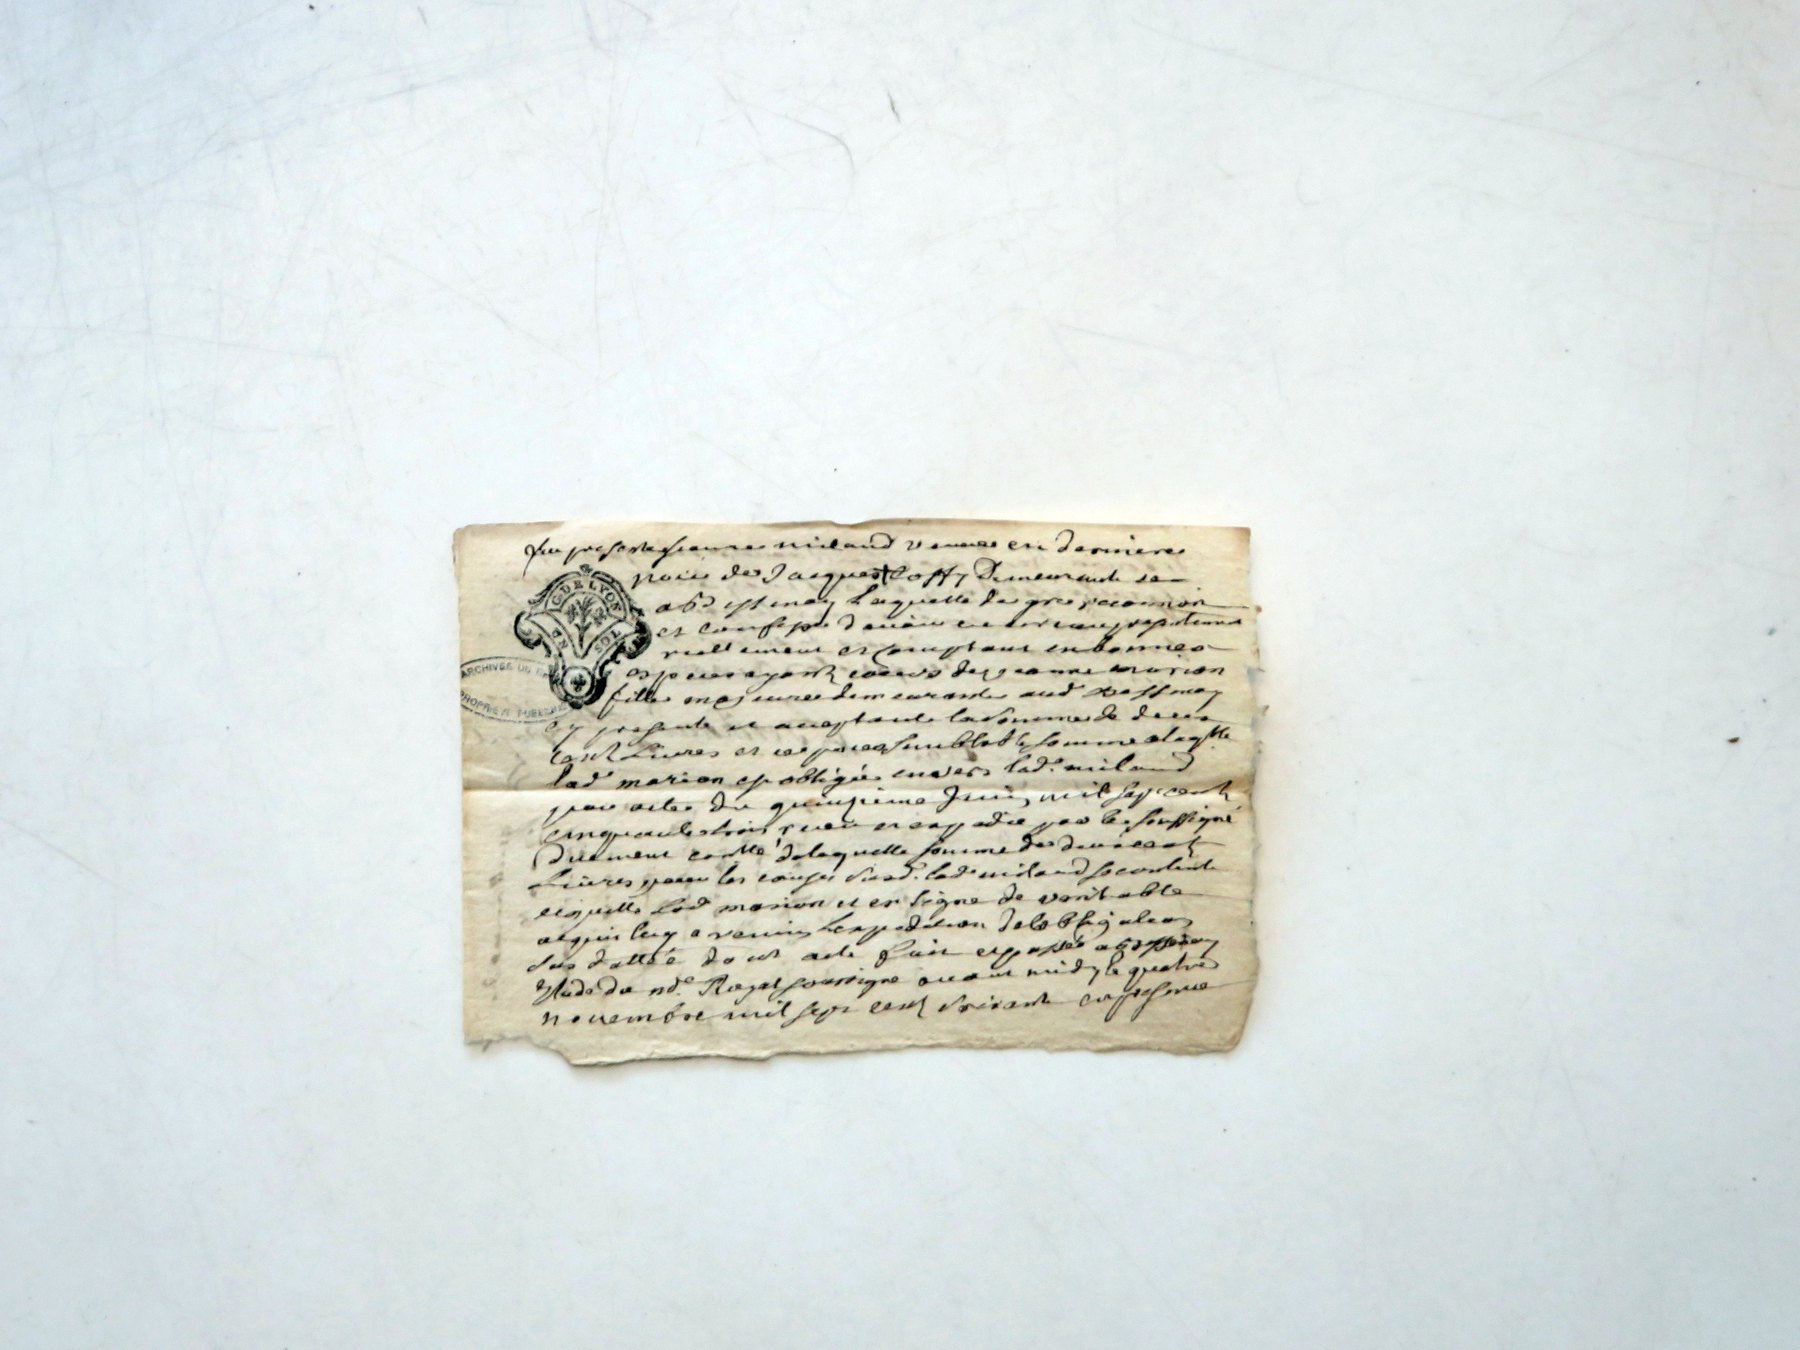 fut presente jeanne miland veuve en derniere
noces de Jacques Coffy Demeurante a
laquelle de gré reconnoit
et confesse d'avoir
reellement et comptant en bonnes
especes ayant cours de jeanne marion
fille majeure demeurante aud
cy presente et acceptante la somme de deux
cent Livres et ce pour semblable somme a laqlle
lad. marion est obligée envers lad. miland
par acte du quinzieme Juin mil sept cent
cinquante trois receu et expedie par le soussigné
Duement contllé de laquelle somme de deux cent
Livres pour les causes susd. lad. milland se contente
et quitte lad marion et en signe de veritable
acquit luy a remis l'expedition de l'obligation
sus dattée dont acte fait et passé a
Etude du nd.e Royal soussigné avant midy le quatre
novembre mil sept cent soixante en presence
G. DE LYON
UN SOL
ARCHIVES DU
PROPRIÉTÉ PUBLIQUE